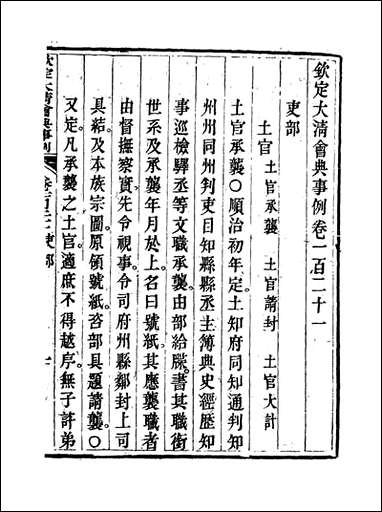 欽定大清會典事例卷一百二十一
吏部
土官 土官承襲 土官請封 土官大計
土官承襲○順治初年定土知府同知通判知
州州同州判吏目知縣縣丞主簿典史經歷知
事巡檢驛丞等文職承襲由部給牒書其職銜
世系及承襲年月於上名曰號紙其應襲職者
由督撫察實先令視事令司府州縣鄰封上司
具結及本族宗圖原領號紙咨部具題請襲○
又定凡承襲之土官適庶不得越序無子許弟
欽定大清會典事例 卷一百二十一 吏部